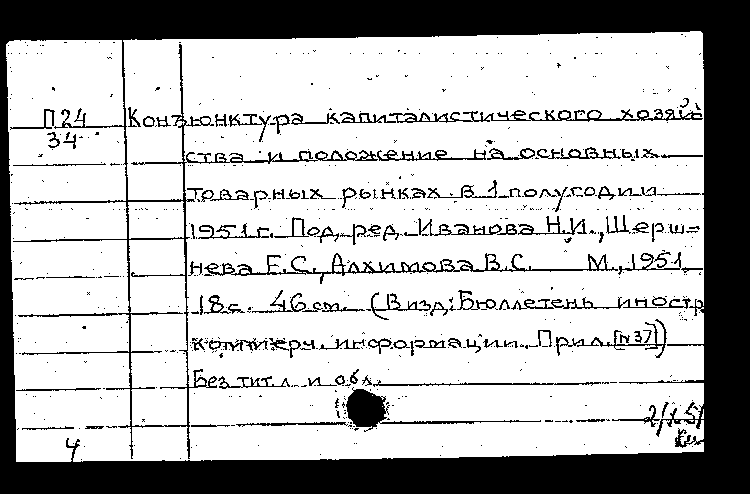 П24 Конъюнктура капиталистического хозяй
34 ства и положение на основных
товарных рынках в 1 полугодии
1951 г. Под ред. Иванова Н.И., Шерш-
нева Е.С., Алхимова В.С. М., 1951.
18 с. 46 см. (В изд.: Бюллетень иностр
коммерч. информации. Прил. [N 37])
Без тит. л и обл.
4